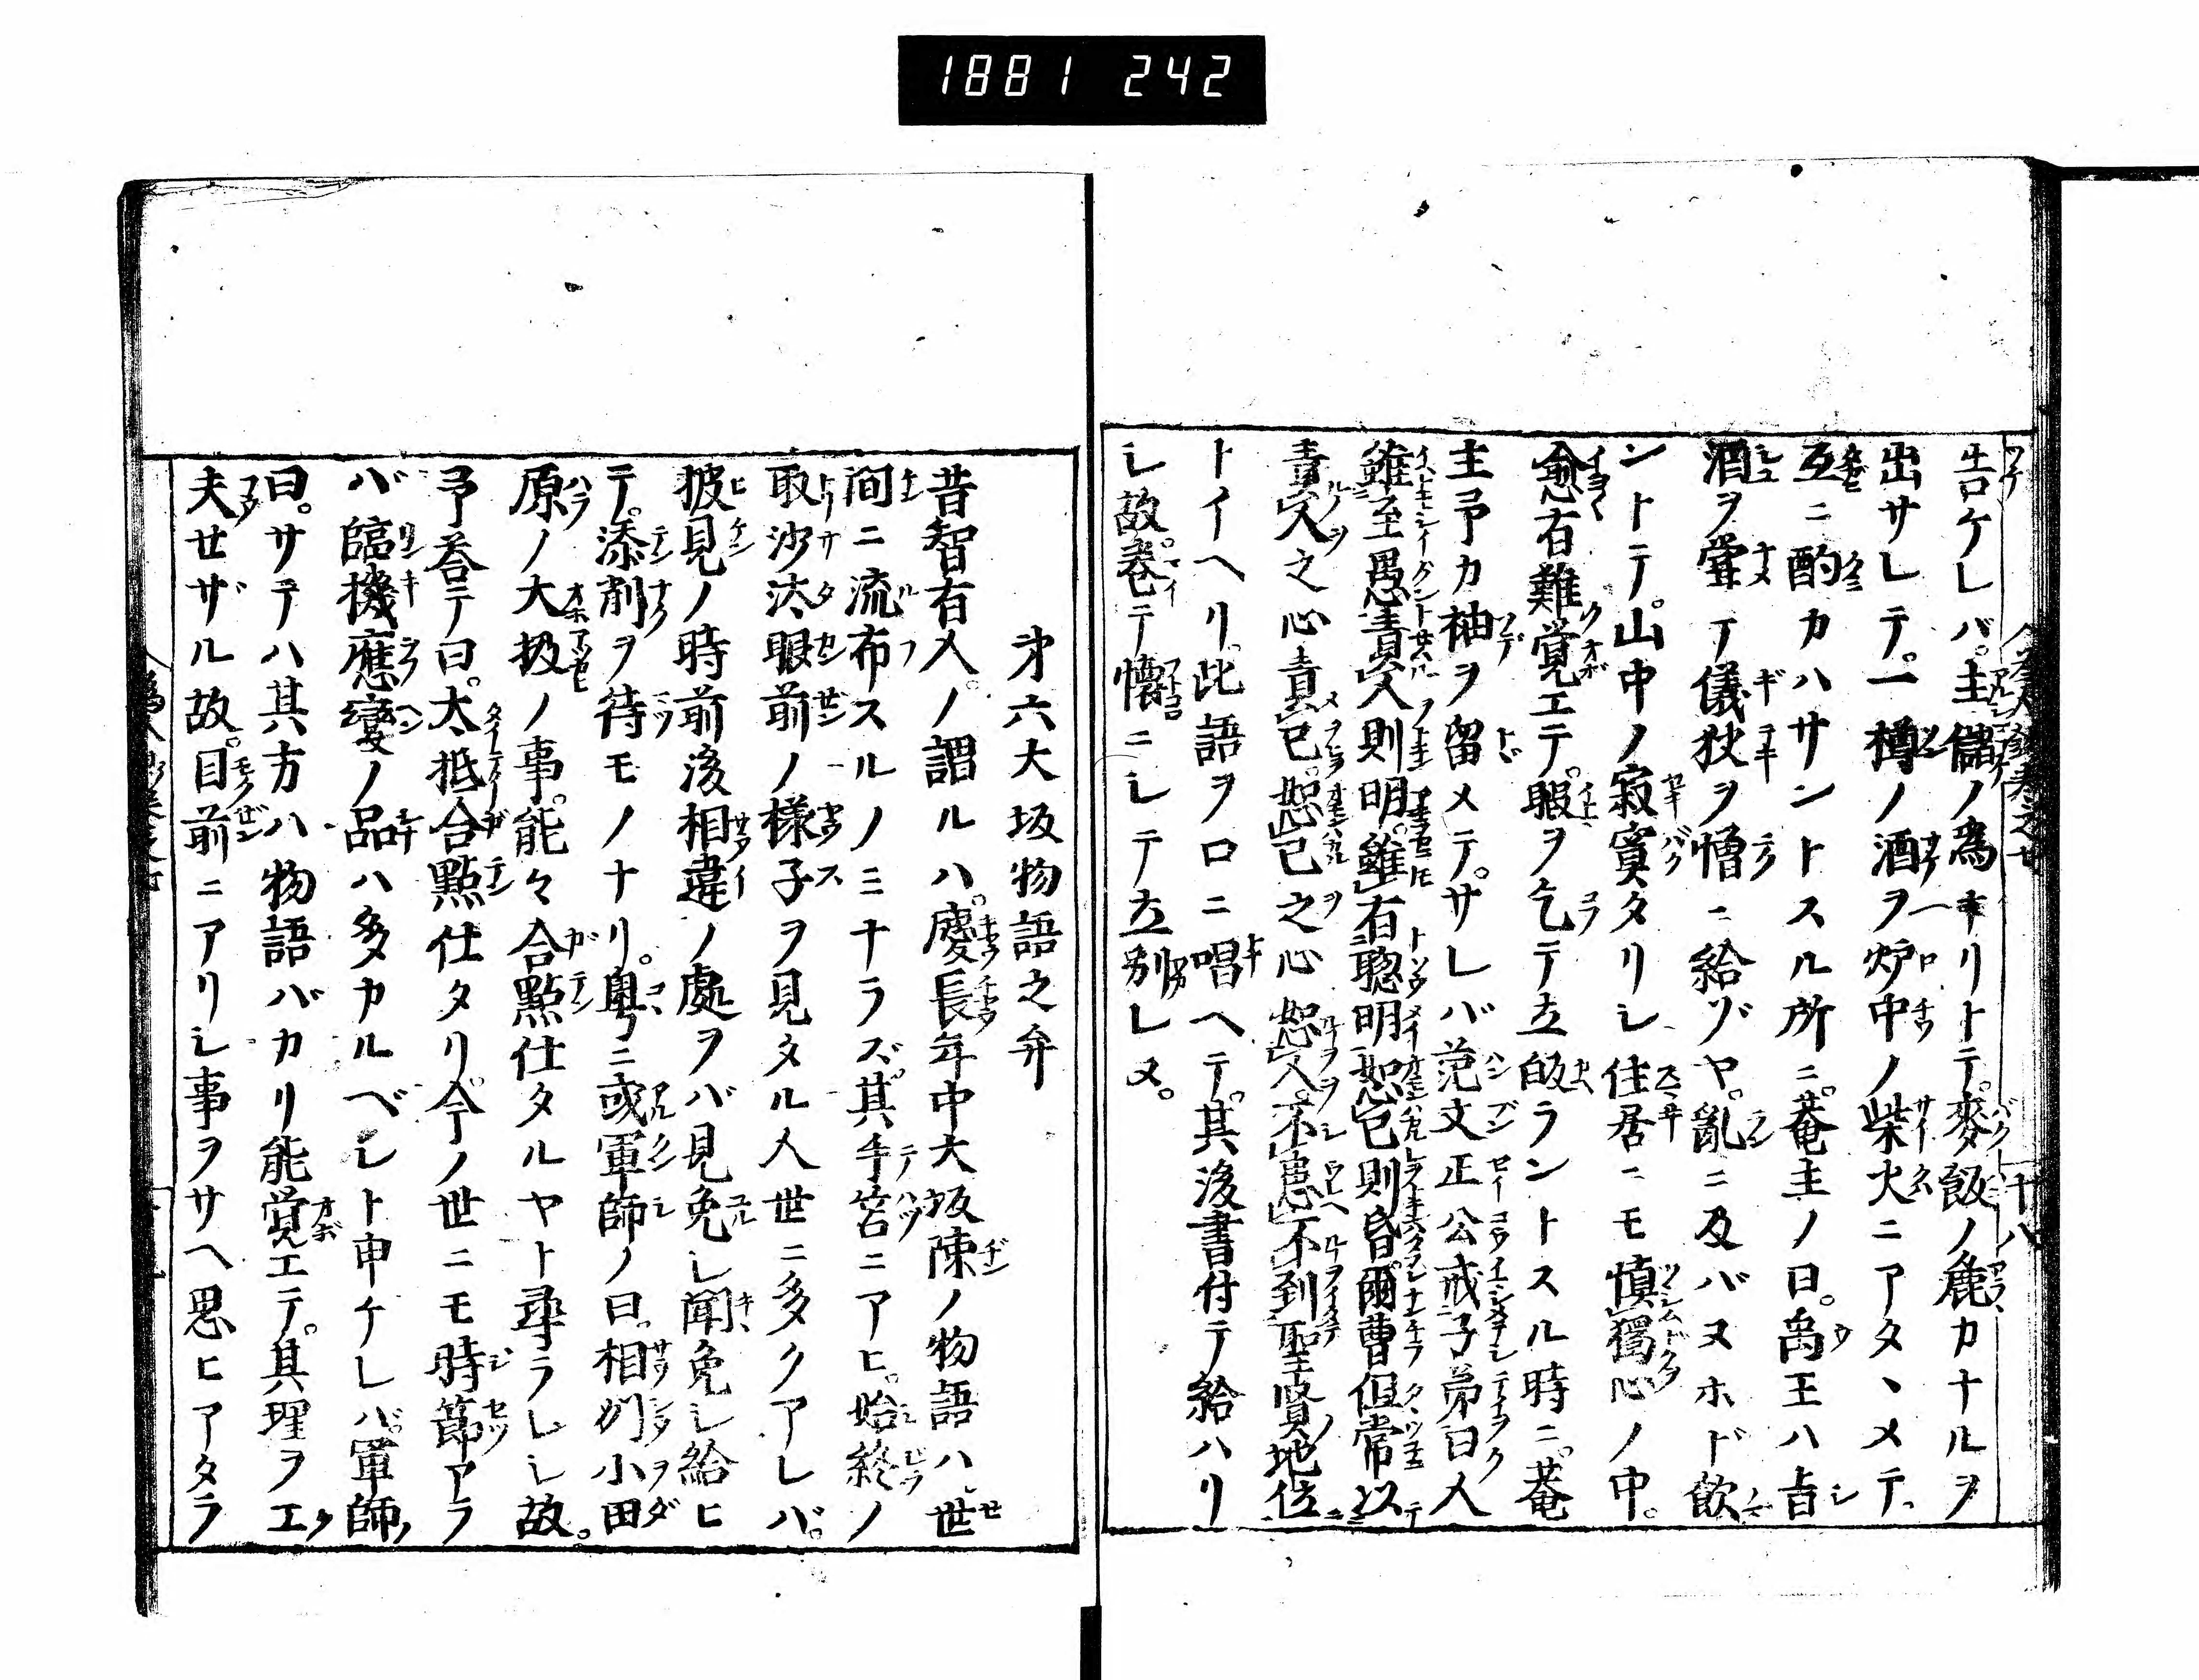 1881 242
告ケレバ。主儲ノ為キリトテ。麥飯ノ麁カナルヲ
出サレテ。一樽ノ酒ヲ炉中ノ柴火ニアタヽメテ。
互ニ酌カハサントスル所ニ。菴主ノ曰。禹王ハ旨
酒ヲ甞テ儀狄ヲ憎ニ給ヅヤ。亂ニ及バヌホド飲
ントテ。山中ノ寂寞タリシ住居ニモ慎獨心ノ中。
愈有難覚エテ。暇ヲ乞テ立皈ラントスル時ニ。菴
主予カ袖ヲ留メテ。サレバ范文正公戒子弟曰人
雖至愚責人則明。雖有聡明恕己則昏。爾曹但常以
責人之心責己。恕己之心恕人。不患不到聖賢地位
トイヘリ。此語ヲ口ニ唱ヘテ。其後書付テ給ハリ
シ故。巻テ懐ニシテ立別レヌ。
才六大坂物語之弁
昔智有人。ノ謂ルハ。慶長年中大坂陳ノ物語ハ世
間ニ流布スルノミナラズ。其手筈ニアヒ。始終ノ
取沙汰眼前ノ様子ヲ見タル人世ニ多クアレバ。
披見ノ時前後相違ノ處ヲバ見免シ聞免シ給ヒ
テ。添削ヲ待モノナリ。粤ニ或軍師ノ曰。相州小田
原ノ大扱ノ事。能々合點仕タルヤト尋ラレシ故。
予答テ曰。大抵合點仕タリ。今ノ世ニモ時節アラ
バ臨機應變ノ品ハ多カルベシト申ケレバ。軍師
曰。サテハ其方ハ物語バカリ能覚エテ。其理ヲエ
夫セザル故。目前ニアリシ事ヲサヘ思ヒアタラ